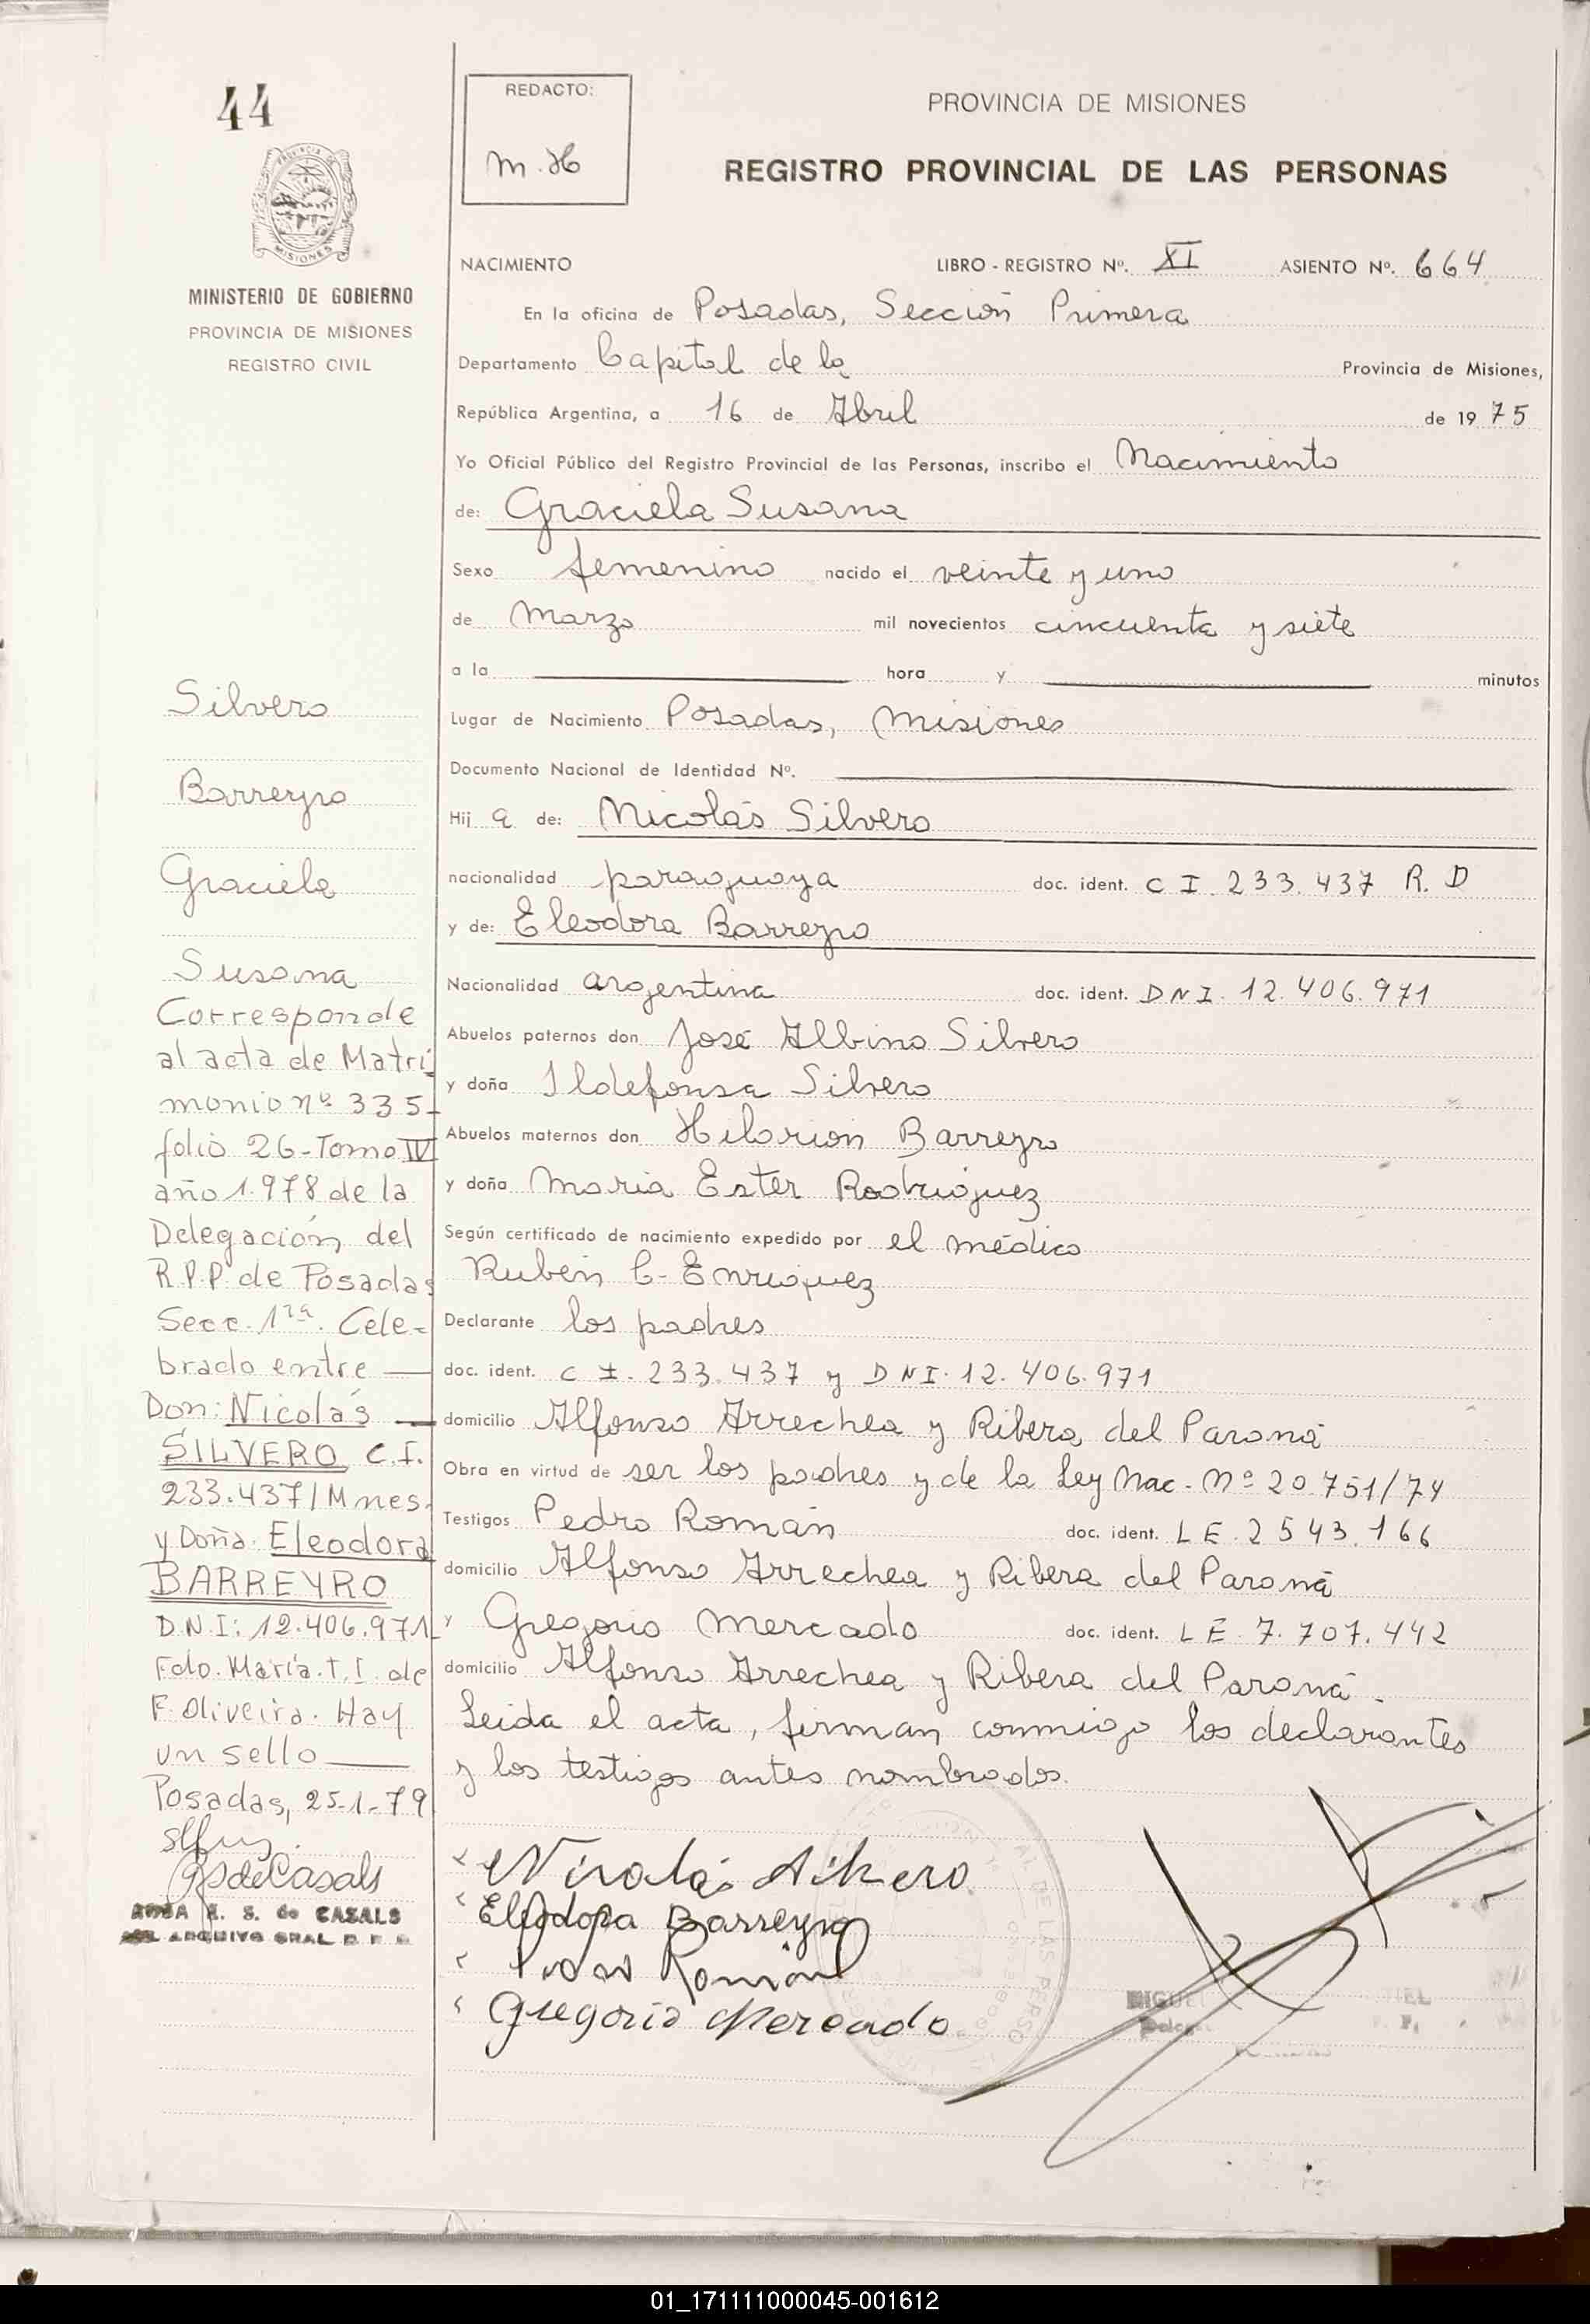 44
MINISTERIO DE GOBIERNO
PROVINCIA DE MISIONES
REGISTRO CIVIL
Silvero
Barreyro
Graciela
Susana
Corresponde
al acta de Matri
monio nº 335-
folio 26-Tomo IV
año 1.978 de la
Delegación del
R.P.P. de Posadas
Secc. 1ra. Cele-
brado entre
Don: Nicolás
SILVERO C.I.
233.437/Mnes.
y Doña: Eleodora
BARREYRO
D.N.I: 12.406.971-
Fdo. María.T.I. de
F. Oliveira. Hay
un sello
Posadas, 25-1-79
RSdeCasals
E. S. de CASALS
ARCHIVO GRAL
REDACTO:
M.H
PROVINCIA DE MISIONES
REGISTRO PROVINCIAL DE LAS PERSONAS
NACIMIENTO LIBRO - REGISTRO Nº. XI ASIENTO Nº. 664
En la oficina de Posadas, Sección Primera
Departamento Capital de la Provincia de Misiones,
República Argentina, a 16 de Abril de 1975
Yo Oficial Público del Registro Provincial de las Personas, inscribo el Nacimiento
de: Graciela Susana
Sexo femenino nacido el veinte y uno
de Marzo mil novecientos cincuenta y siete
a la hora y minutos
Lugar de Nacimiento Posadas, Misiones
Documento Nacional de Identidad Nº.
Hij a de: Nicolás Silvero
nacionalidad paraguaya doc. ident. C I. 233.437 R. D
y de: Eleodora Barreyro
Nacionalidad argentina doc. ident. DNI. 12.406.971
Abuelos paternos don José Albino Silvero
y doña Ildefonsa Silvero
Abuelos maternos don Hilarion Barreyro
y doña Maria Ester Rodriguez
Según certificado de nacimiento expedido por el médico
Rubén C. Enriquez
Declarante los padres
doc. ident. C I. 233.437 y DNI. 12.406.971
domicilio Alfonso Arrechea y Ribera del Paraná
Obra en virtud de ser los padres y de la Ley Nac. Nº 20.751/74
Testigos Pedro Román doc. ident. LE. 2543.166
domicilio Alfonso Arrechea y Ribera del Paraná
y Gregorio Mercado doc. ident. LE. 7.707.442
domicilio Alfonso Arrechea y Ribera del Paraná.
Leida el acta, firman conmigo los declarantes
y los testigos antes nombrados.
Nicolás Silvero
Eleodora Barreyro
Román
Gregorio Mercado
MIGUEL
01_171111000045-001612